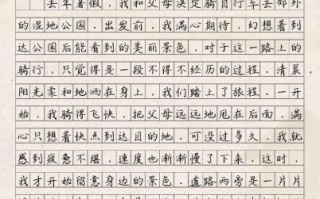 去年暑假，我和父母决定骑自行车去郊外
的湿地公园，出发前，我满心期待，幻想着到
达公园后能看到的美丽景色，对于这一路上的
骑行，只觉得是一段不得不经历的过程，清晨
阳光柔和地洒在身上，我们踏上了旅程，一开
始，我骑得飞快，把父母远远地甩在后面，满
心只想着快点到达目的地，可没过多久，我就
感到疲惫不堪，速度也渐渐慢了下来，这时，
我才开始留意身边的景色，道路两旁是一片片